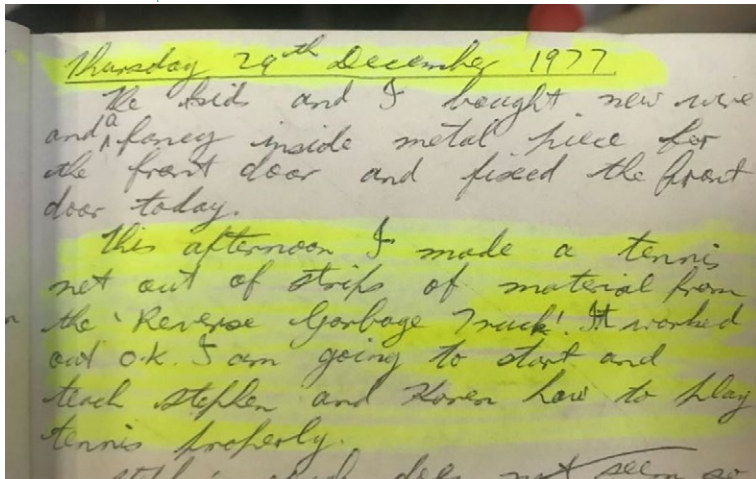 Thursday 29th December 1977
The kids and I bought new wire
and a fancy inside metal piece for
the front door and fixed the front
door today.
This afternoon I made a tennis
net out of strips of material from
the 'Reverse Garbage Truck'. It worked
out o.k. I am going to start and
teach Stephen and Karen how to play
tennis properly.
does not seem so